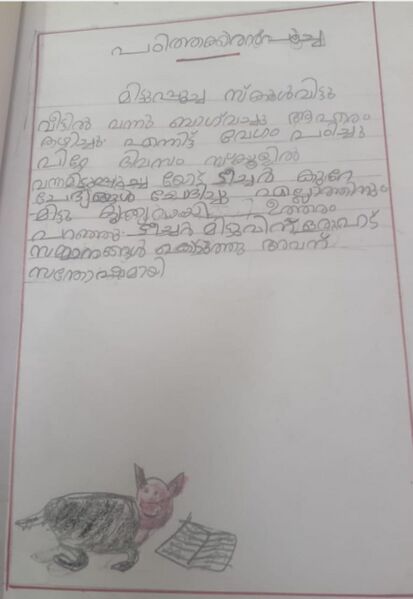 പഠിത്തക്കാരൻപൂച്ച
മിട്ടുപൂച്ച സ്കൂൾവിട്ടു
വീട്ടിൽ വന്നു ബാഗ് വച്ചു ആഹാരം
കഴിച്ചു എന്നിട്ട് വേഗം പഠിച്ചു
പിറ്റേ ദിവസം സ്കൂളിൽ
വന്നമിട്ടുപൂച്ച യോട് ടീച്ചർ കുറേ
ചോദ്യങ്ങൾ ചോദിച്ചു എല്ലാത്തിനും
മിട്ടു കൃത്യമായി ഉത്തരം
പറഞ്ഞു ടീച്ചർ മിട്ടുവിന് ഒരുപാട്
സമ്മാനങ്ങൾ കൊടുത്തു അവന്
സന്തോഷമായി